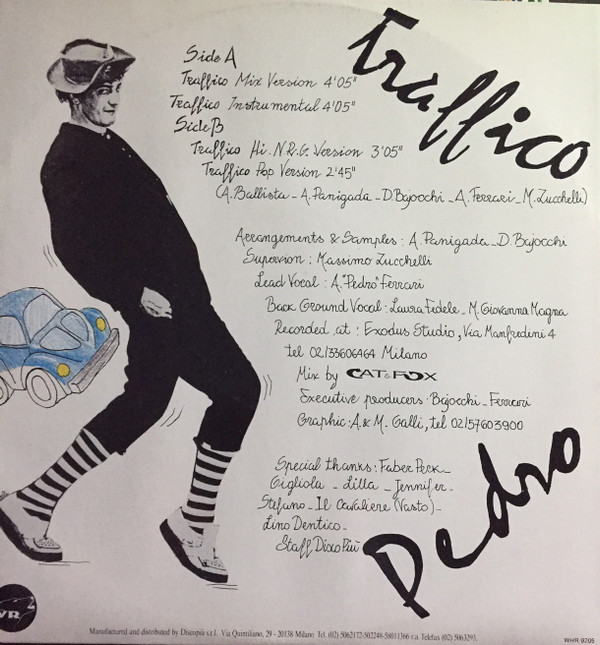 Traffico
Side A
Traffico Mix Version 4'05"
Traffico Instrumental 4'05"
Side B
Traffico Hi.N.R.G. Version 3'05"
Traffico Pop Version 2'45"
(A.Ballista - A.Panigada - D.Bajocchi - A.Ferrari - M.Zucchelli)
Arrangements & Samples : A. Panigada - D. Bajocchi
Supervion : Massimo Zucchelli
Lead Vocal : A."Pedro" Ferrari
Back Ground Vocal : Laura Fedele - M. Giovanna Magna
Recorded at : Exodus Studio, Via Manfredini 4
tel 02/33606464 Milano
Mix by CAT & FOX
Executive producers: Bajocchi - Ferrari
Graphic: A. & M. Galli, tel 02/57603900
Special thanks: Faber Peck -
Gigliola - Lilla - Jennifer -
Stefano - Il Cavaliere (Vasto) -
Lino Dentico -
Staff Disco Più
Pedro
Manufactured and distributed by Discopiù s.r.l. Via Quintiliano, 29 - 20138 Milano Tel. (02) 5062172-502248-58011366 r.a. Telefax (02) 5063293
WHR 9205